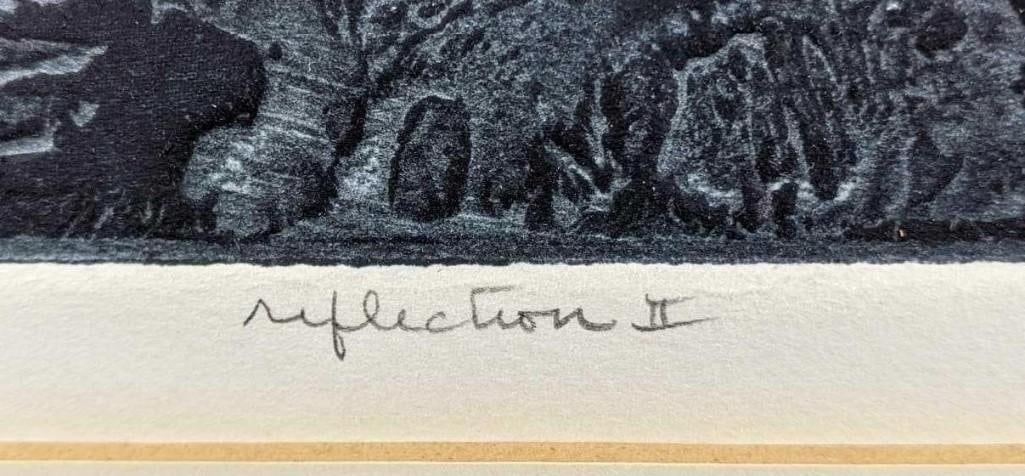 reflection II